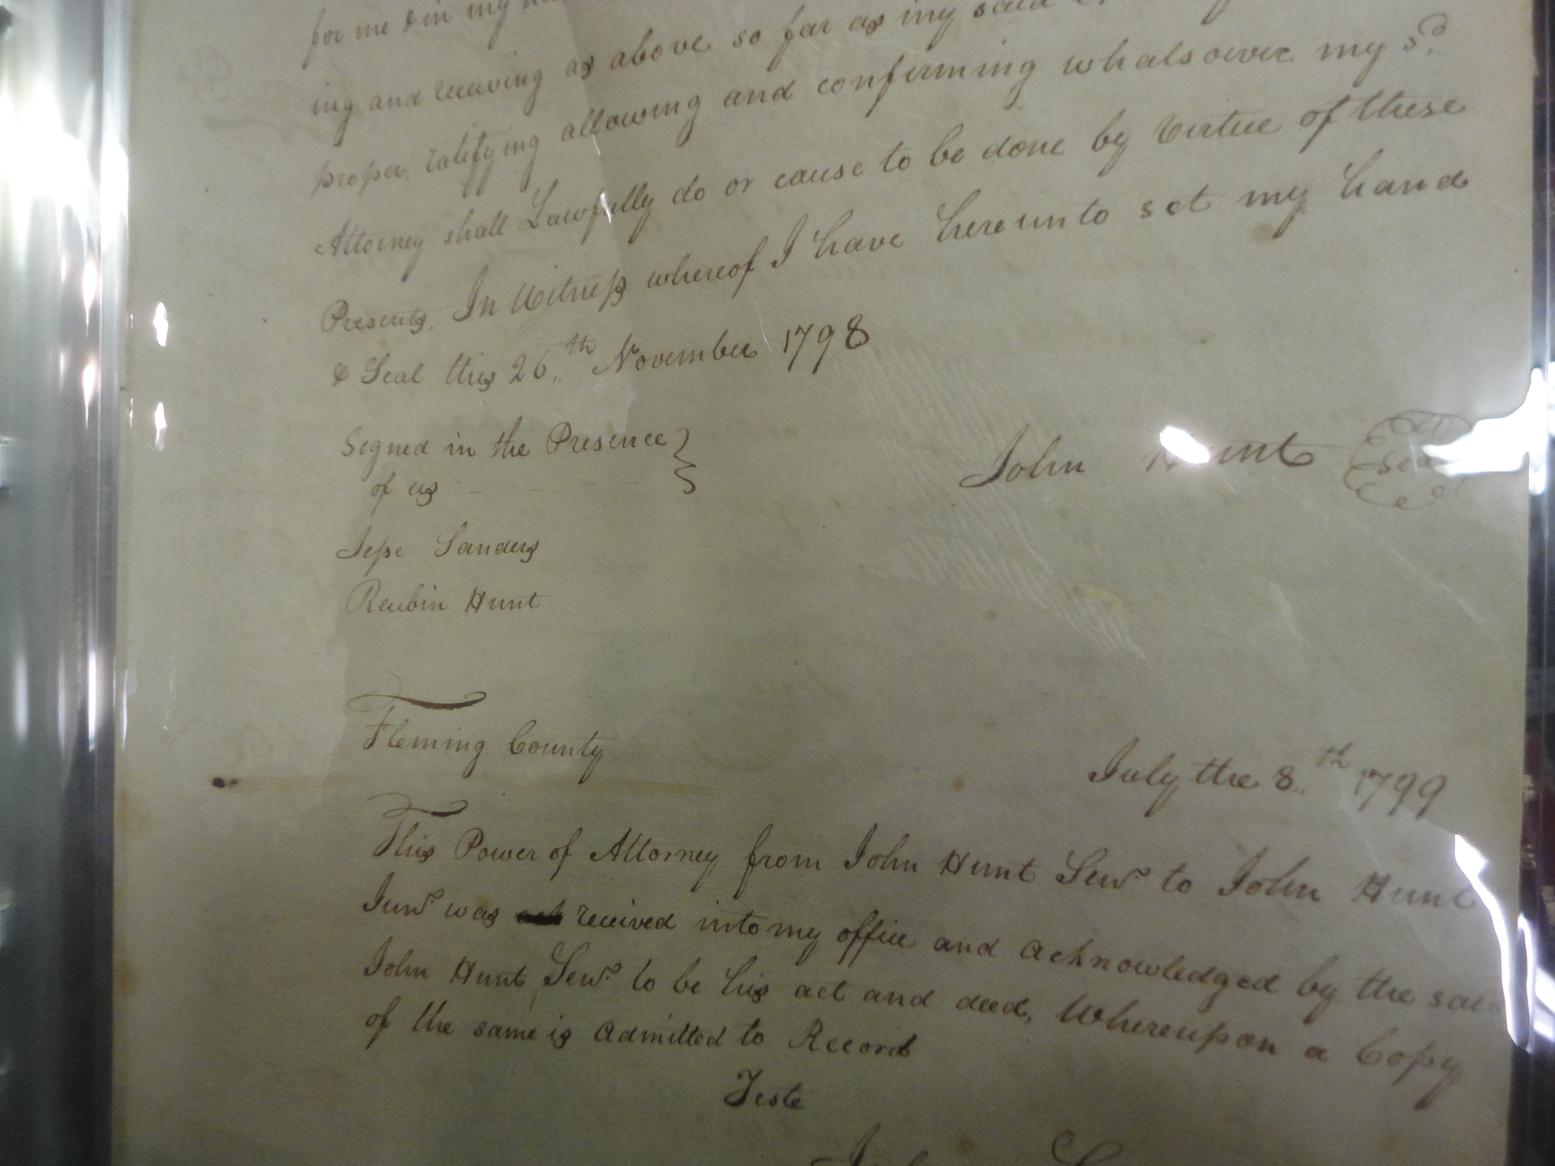 for me & in my
ing and receiving as above so far as my said
proper, ratifying allowing and confirming whatsoever my sd.
Attorney shall Lawfully do or cause to be done by Virtue of these
Presents. In Witness whereof I have hereunto set my hand
& Seal this 26th November 1798
Segned in the Presence
of us
John Hunt Seal
Jesse Sanders
Reubin Hunt
Fleming County
July the 8th 1799
This Power of Attorney from John Hunt Senr to John Hunt
Junr was received into my office and acknowledged by the said
John Hunt Senr to be his act and deed, Whereupon a Copy
of the same is admitted to Record
Teste